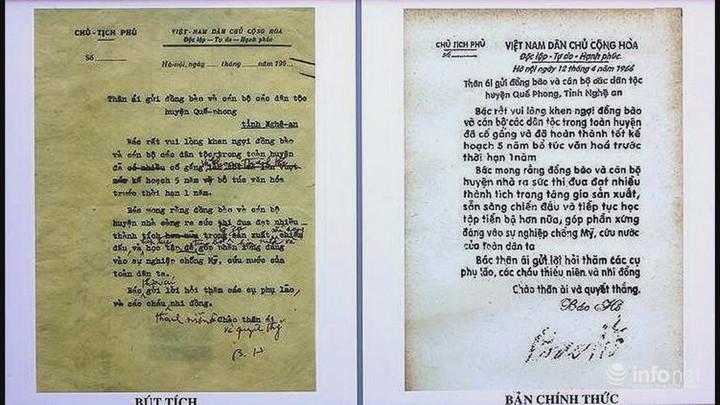 CHỦ-TỊCH PHỦ
VIỆT-NAM DÂN CHỦ CỘNG HÒA
Độc lập – Tự do – Hạnh phúc
Số
Hà-nội, ngày tháng năm 195
Thân ái gửi đồng bào và cán bộ các dân tộc
huyện Quế-phong
tỉnh Nghệ-an
Bác rất vui lòng khen ngợi đồng bào
và cán bộ các dân tộc trong toàn huyện
đã có nhiều cố gắng
kế hoạch 5 năm về bổ túc văn hóa
trước thời hạn 1 năm.
Bác mong rằng đồng bào và cán bộ
huyện nhà càng ra sức thi đua đạt nhiều
thành tích hơn nữa trong sản xuất, chiến
đấu và học tập để góp phần xứng đáng
vào sự nghiệp chống Mỹ, cứu nước của
toàn dân ta.
Bác gửi lời hỏi thăm các cụ phụ lão,
và các cháu nhi đồng.
Chào thân ái
và quyết thắng
B. H
BÚT TÍCH
CHỦ TỊCH PHỦ
VIỆT NAM DÂN CHỦ CỘNG HÒA
Số
Độc lập – Tự do – Hạnh phúc
Hà nội ngày 12 tháng 4 năm 1966
Thân ái gửi đồng bào và cán bộ các dân tộc
huyện Quế Phong, Tỉnh Nghệ an
Bác rất vui lòng khen ngợi đồng bào
và cán bộ các dân tộc trong toàn huyện
đã cố gắng và đã hoàn thành tốt kế
hoạch 5 năm bổ túc văn hoá trước
thời hạn 1 năm
Bác mong rằng đồng bào và cán bộ
huyện nhà ra sức thi đua đạt nhiều
thành tích trong tăng gia sản xuất,
sẵn sàng chiến đấu và tiếp tục học
tập tiến bộ hơn nữa, góp phần xứng
đáng vào sự nghiệp chống Mỹ, cứu nước
của toàn dân ta
Bác thân ái gửi lời hỏi thăm các cụ
phụ lão, các cháu thiếu niên và nhi đồng
Chào thân ái và quyết thắng.
Bác Hồ
infonet
BẢN CHÍNH THỨC